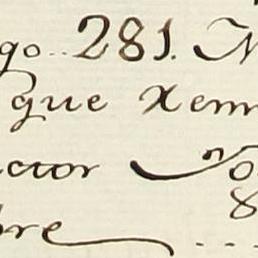 go.. 281. N
que Xem
ctor No
bre 8